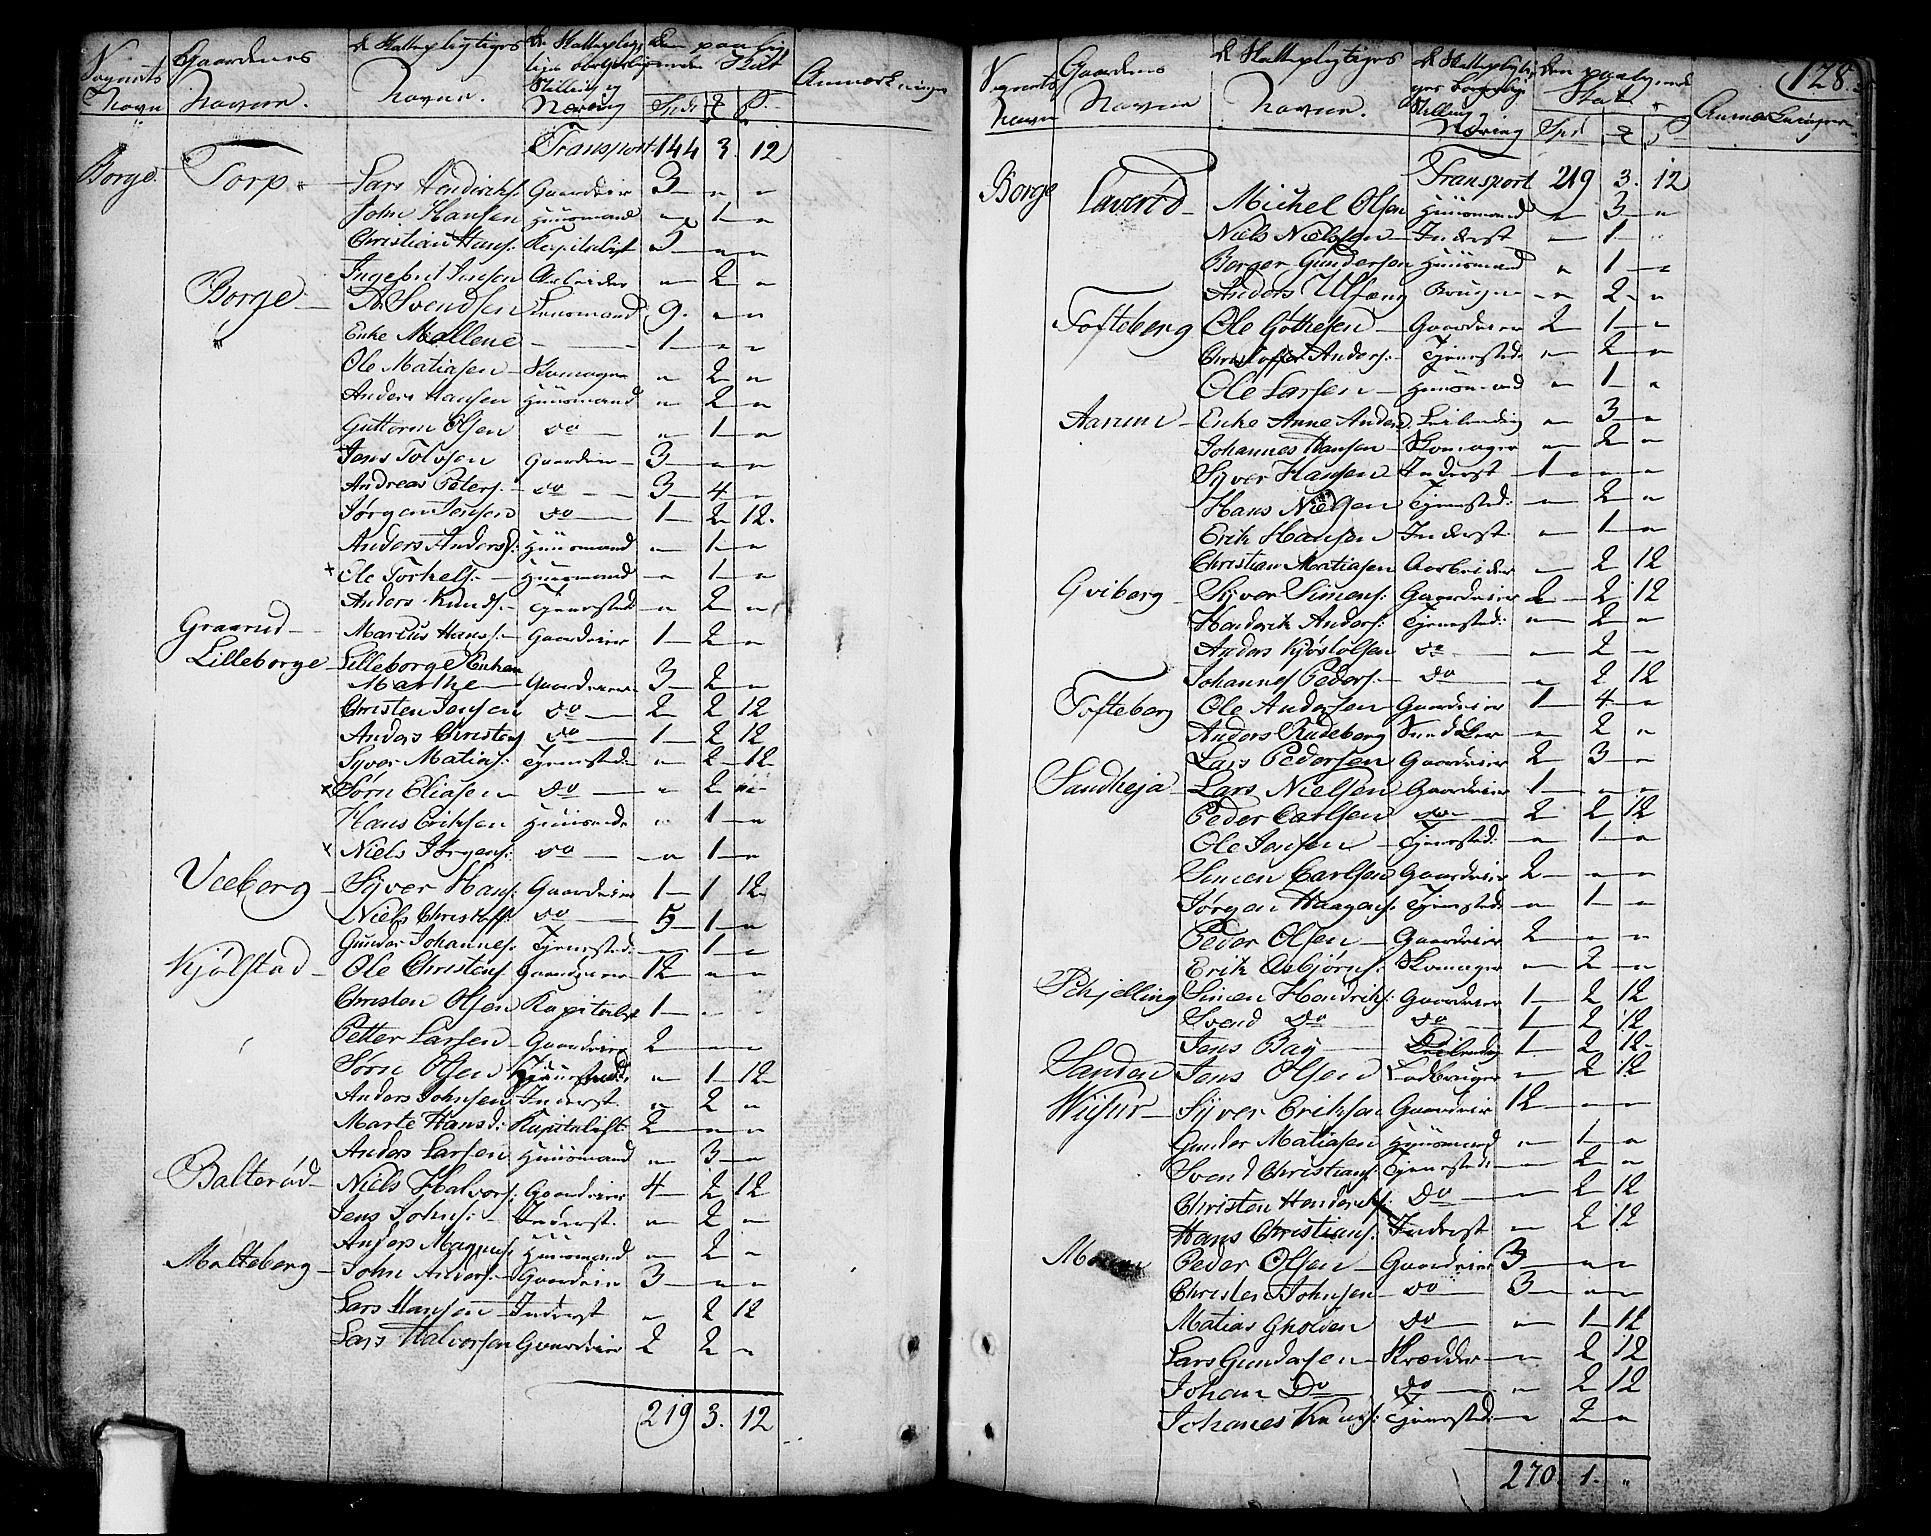 Sognets Navn | Gaardenes Navne. | de Skattepligtiges Navne. | de Skattepligtiges borgerlige Stilling og Næring | Den paaligende Skat | Anmærkninger
Transport 144 3. 12
Borge. Torp Lars Hendrichs. Gaardeier 3 " "
John Hansen Huusmand " 1 "
Christian Hans: Kapitalist 5 " "
Ingebret Jensen Arbeider " 2 "
Borge Svendsen 9. " "
Enke Mallene 1 " "
Ole Matiasen Skomager " 2 "
Anders Hansen Huusmand " 2 "
Guttorm Olsen do " 1 "
Jens Tolvsen Gaardeier 3 " "
Andreas Peters. do 3 4 "
Jørgen Jensen do 1 2 12.
Anders Anders: Huusmand " 1 "
x Ole Torkels. Huusmand " 1 "
Anders Knuds. Tjenersted " 2 "
Graarud Marcus Hans. Gaardeier 1 2 "
Lilleborge Lilleborge Enken
Marthe Gaardeier 3 2 "
Christen Jensen do 2 2 12
Anders Christens do 1 2 12
Syver Matias. Tjenersted: " 2 12
x Sørn Eliasen do " 2
Hans Eriksen Huusmand " 1 "
x Niels Jørgens: do " 1 "
Veeborg Syver Hans. Gaardeier 1 1 12
Niels Christoff: do 5 1 "
Gunder Johannes: Tjenersted: " 1 "
Kjølstad Ole Christens. Gaardeier 12 " "
Christen Olsen Kapitalist 1 " "
Petter Larsen Gaardeier 2 " "
Sørn Olsen " 1 12
Anders Johnsen Inderst " 2 "
Marte Hansd: Kapitalist 2 " "
Anders Larsen Huusmand " 3 "
Balterød Niels Halvors: Gaardeier 4 2 12
Jens Johns: Inderst. " 2 "
Anders Magnus. Huusmand " 2 "
Molteberg John Anders. Gaardeier 3 " "
Lars Hansen Inderst " 2 12
Lars Halvorsen Gaardeier 2 2 "
219 3. 12
128.
Sognets Navn | Gaardens Navne | de Skattepligtiges Navne. | de Skattepligtiges borgerlige Stilling Næring | Den paaligende Skat. | Anmærkninger
Transport 219 3. 12
Borge Laverød Michel Olsen Huusmand " 3 "
Niels Nielsen Inderst " 1 "
Borger Gundersen Huusmand " 1 "
Anders Ulfeng Bruger " 2 "
Tofteberg Ole Gøthesen Gaardeier 2 1 "
Christoffer Anders: Tjenersted: " 2 "
Ole Larsen Huusmand " 1 "
Aarum Enke Anne Andersd. Leilending " 3 "
Johannes Hansen Skomager " 2 "
Syver Hansen Inderst 1 " "
Hans Nielsen Tjenersted: " 2 "
Erik Hansen Inderst " 1 "
Christian Matiasen Aarbeider " 2 12
Gviberg Syver Simens: Gaardeier 2 2 12
Henderik Anders: Tjenersted: " 2 "
Anders Kjøstolsen do " 2 "
Johannes Peders. Do " 2 12
Tofteberg Ole Andersen Gaardeier 1 4 "
Anders Rudeberg " 2 "
Lars Pedersen Gaardeier 2 3 "
Sandheja Lars Nielsen Gaardeier 1 " "
Peder Carlsen do 2 2 12
Ole Jensen Tjenersted: " 1 "
Simen Carlsen Gaardeier 2 " "
Jørgen Haagens: Tjenersted: " 1 "
Peder Olsen Gaardeier 2 " "
Erik Asbjørns: Skomager " 2 "
Schjelling Simen Hendriks: Gaardeier 1 2 12
Svend Do do 1 2 12
Jens Bay Leilending 1 2 12
Sanden Jens Olsen " 2 12
Wisur Syver Eriksen Gaardeier 12 " "
Gunder Matiasen Huusmand " 1 "
Svend Christians: Tjenersted: " 2 "
Christen Henderiks: do " 2 12
Hans Christians: Inderst " 2 12
Peder Olsen Gaardeier 3 " "
Christen Johnsen do 3 " "
Matias Gholven do " 1 12
Lars Gundersen Skrædder " 2 12
Johan Do do " 2 12
Johanes Knuds: Tjenersted: " 2 "
270. 1. "